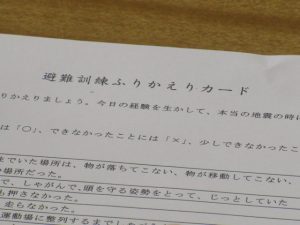 避難訓練ふりかえりカード
りかえりましょう。今日の経験を生かして、本当の地震の時に
は「○」、できなかったことには「×」、少しできなかったこ
いた場所は、物が落ちてこない、物が移動してこない、
場所だった。
で、しゃがんで、頭を守る姿勢をとって、じっとしていた
も押さなかった。
走らなかった。
運動場に整列するまでしゃべ